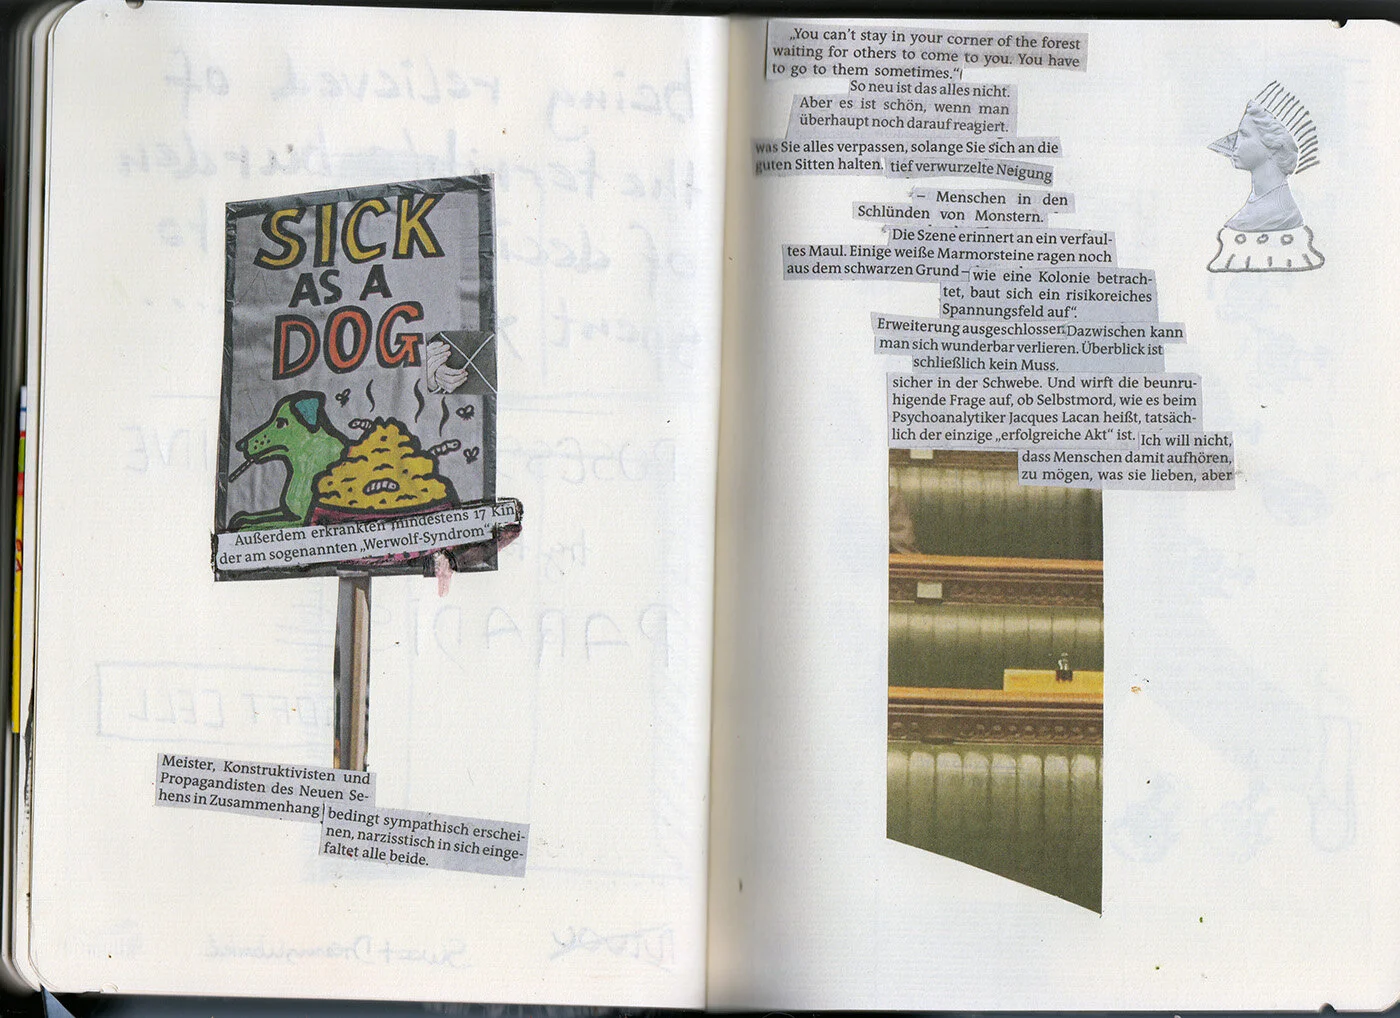 SICK
AS A
DOG
Außerdem erkrankten mindestens 17 Kin
der am sogenannten „Werwolf-Syndrom“
Meister, Konstruktivisten und
Propagandisten des Neuen Se-
hens in Zusammenhang
bedingt sympathisch erschei-
nen, narzisstisch in sich einge-
faltet alle beide.
„You can't stay in your corner of the forest
waiting for others to come to you. You have
to go to them sometimes.“
So neu ist das alles nicht.
Aber es ist schön, wenn man
überhaupt noch darauf reagiert.
was Sie alles verpassen, solange Sie sich an die
guten Sitten halten. tief verwurzelte Neigung
– Menschen in den
Schlünden von Monstern.
Die Szene erinnert an ein verfaul-
tes Maul. Einige weiße Marmorsteine ragen noch
aus dem schwarzen Grund – wie eine Kolonie betrach-
tet, baut sich ein risikoreiches
Spannungsfeld auf“.
Erweiterung ausgeschlossen. Dazwischen kann
man sich wunderbar verlieren. Überblick ist
schließlich kein Muss.
sicher in der Schwebe. Und wirft die beunru-
higende Frage auf, ob Selbstmord, wie es beim
Psychoanalytiker Jacques Lacan heißt, tatsäch-
lich der einzige „erfolgreiche Akt“ ist. Ich will nicht,
dass Menschen damit aufhören,
zu mögen, was sie lieben, aber
being relieved of
the burden
of
PARADISE
SOFT CELL